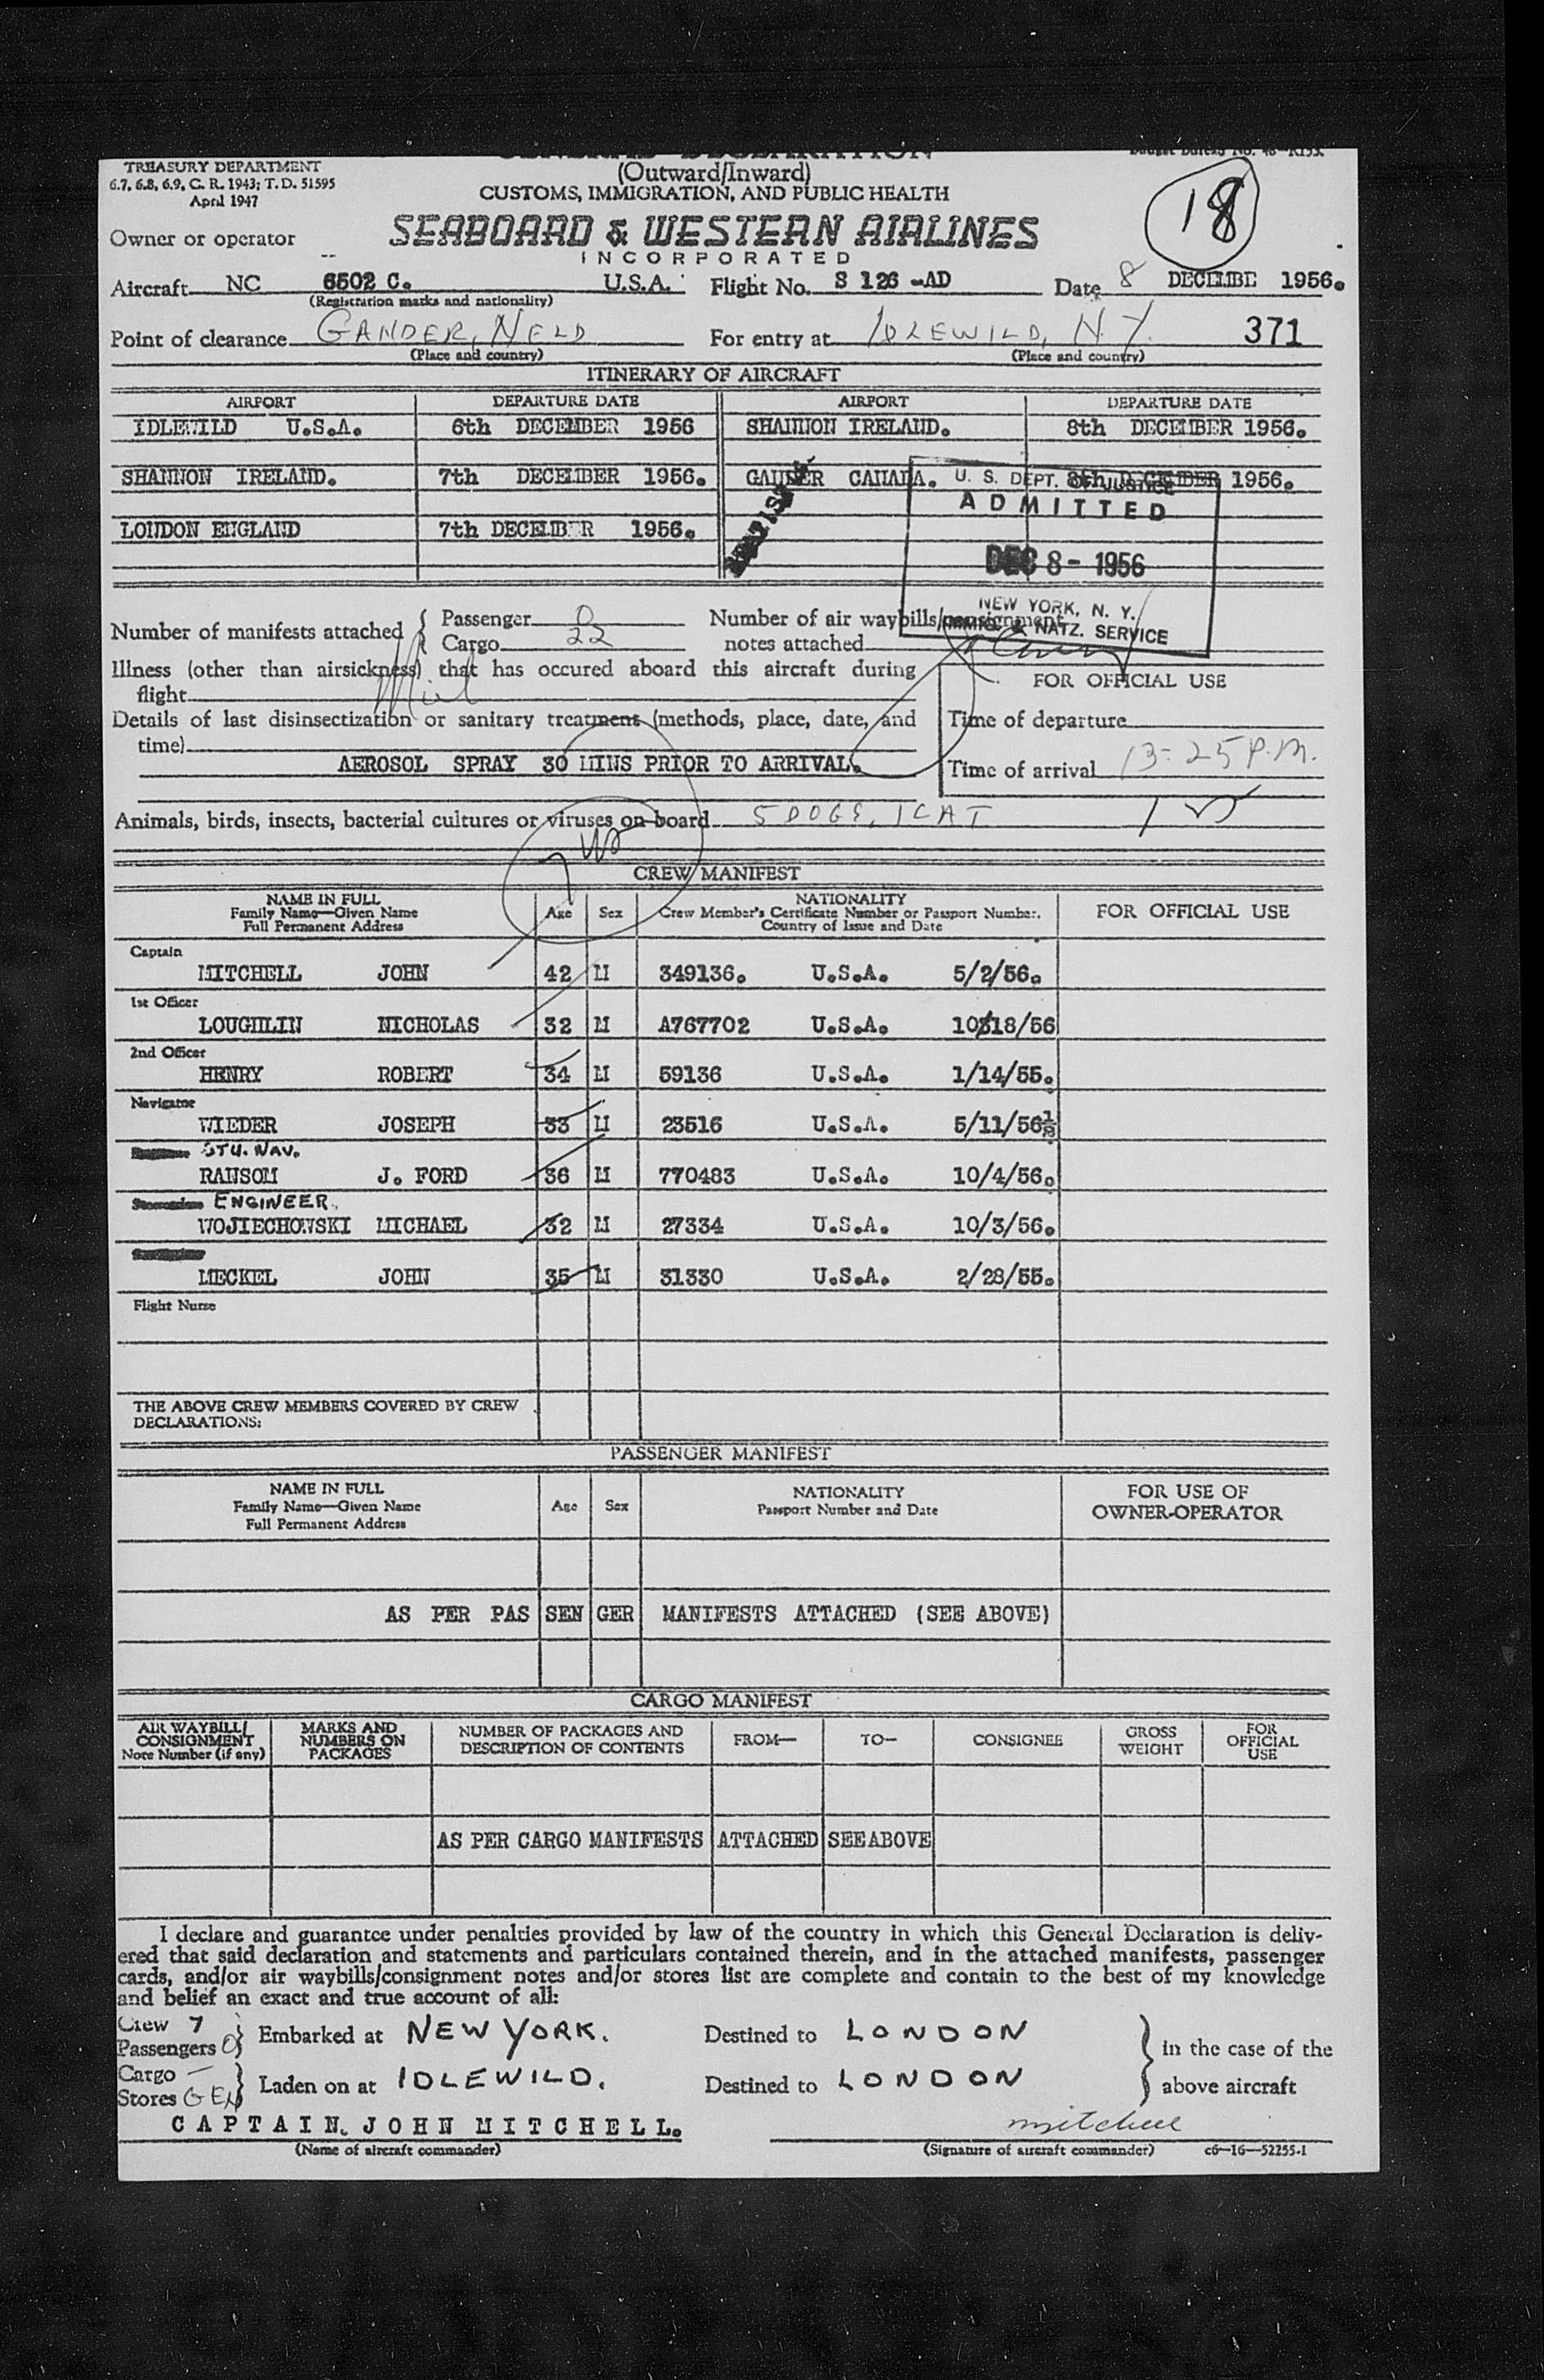 TREASURY DEPARTMENT
6.7, 6.8, 6.9, C. R. 1943; T. D. 51595
April 1947
GENERAL DECLARATION
(Outward/Inward)
CUSTOMS, IMMIGRATION, AND PUBLIC HEALTH
18
Owner or operator SEABOARD & WESTERN AIRLINES
INCORPORATED
Aircraft NC 6502 C. U.S.A. Flight No. S 126 -AD Date 8 DECEMBE 1956.
(Registration marks and nationality)
Point of clearance GANDER, NFLD For entry at IDLEWILD, N.Y. 371
(Place and country) (Place and country)
ITINERARY OF AIRCRAFT
AIRPORT DEPARTURE DATE AIRPORT DEPARTURE DATE
IDLEWILD U.S.A. 6th DECEMBER 1956 SHANNON IRELAND. 8th DECEMBER 1956.
SHANNON IRELAND. 7th DECEMBER 1956. GANDER CANADA. 8th DECEMBER 1956.
LONDON ENGLAND 7th DECEMBER 1956.
U. S. DEPT. OF JUSTICE
ADMITTED
DEC 8 - 1956
NEW YORK, N. Y.
IMMIG. & NATZ. SERVICE
Number of manifests attached { Passenger 0 Number of air waybills/consignment
Cargo 22 notes attached
Illness (other than airsickness) that has occured aboard this aircraft during
flight
FOR OFFICIAL USE
Details of last disinsectization or sanitary treatment (methods, place, date, and
time)
Time of departure
AEROSOL SPRAY 30 MINS PRIOR TO ARRIVAL.
Time of arrival 13-25 P.M.
Animals, birds, insects, bacterial cultures or viruses on board 5 DOGS, 1 CAT
CREW MANIFEST
NAME IN FULL
Family Name—Given Name
Full Permanent Address
Age Sex
NATIONALITY
Crew Member's Certificate Number or Passport Number.
Country of Issue and Date
FOR OFFICIAL USE
Captain
MITCHELL JOHN 42 M 349136. U.S.A. 5/2/56.
1st Officer
LOUGHLIN NICHOLAS 32 M A767702 U.S.A. 10/18/56
2nd Officer
HENRY ROBERT 34 M 59136 U.S.A. 1/14/55.
Navigator
WIEDER JOSEPH 33 M 23516 U.S.A. 5/11/56
STU. NAV.
RANSOM J. FORD 36 M 770483 U.S.A. 10/4/56.
ENGINEER.
WOJIECHOWSKI MICHAEL 32 M 27334 U.S.A. 10/3/56.
MECKEL JOHN 35 M 31330 U.S.A. 2/28/55.
Flight Nurse
THE ABOVE CREW MEMBERS COVERED BY CREW
DECLARATIONS:
PASSENGER MANIFEST
NAME IN FULL
Family Name—Given Name
Full Permanent Address
Age Sex
NATIONALITY
Passport Number and Date
FOR USE OF
OWNER-OPERATOR
AS PER PAS SEN GER MANIFESTS ATTACHED (SEE ABOVE)
CARGO MANIFEST
AIR WAYBILL/
CONSIGNMENT
Note Number (if any)
MARKS AND
NUMBERS ON
PACKAGES
NUMBER OF PACKAGES AND
DESCRIPTION OF CONTENTS
FROM— TO— CONSIGNEE
GROSS
WEIGHT
FOR
OFFICIAL
USE
AS PER CARGO MANIFESTS ATTACHED SEE ABOVE
I declare and guarantee under penalties provided by law of the country in which this General Declaration is deliv-
ered that said declaration and statements and particulars contained therein, and in the attached manifests, passenger
cards, and/or air waybills/consignment notes and/or stores list are complete and contain to the best of my knowledge
and belief an exact and true account of all:
Crew 7
Passengers 0 } Embarked at NEW YORK. Destined to LONDON
in the case of the
Cargo —
Stores GEN } Laden on at IDLEWILD. Destined to LONDON
above aircraft
CAPTAIN. JOHN MITCHELL. mitchell
(Name of aircraft commander) (Signature of aircraft commander) c6—16—52255-1